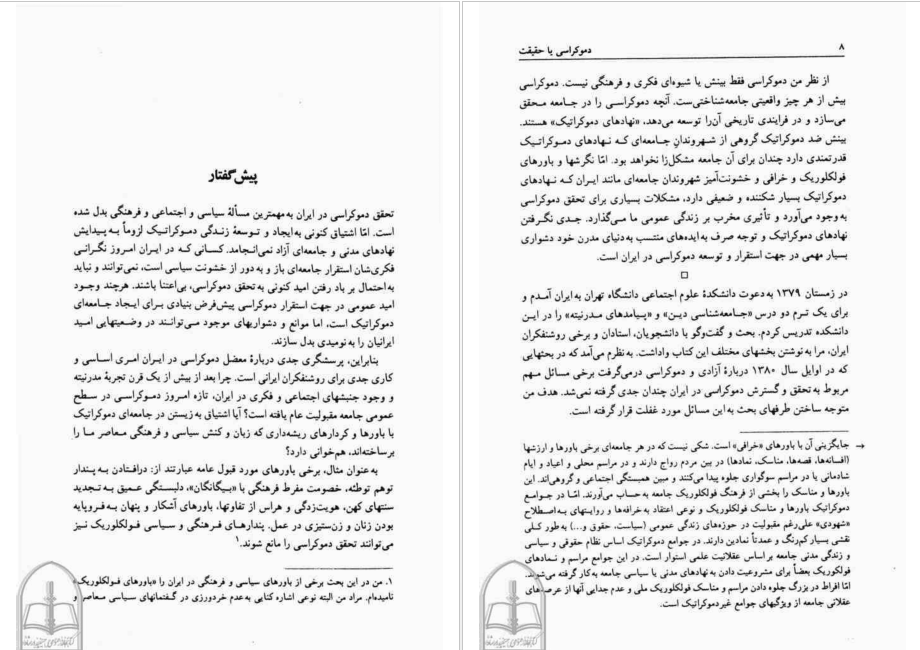 پیش‌گفتار
تحقق دموکراسی در ایران به‌مهمترین مسألهٔ سیاسی و اجتماعی و فرهنگی بدل شده
است. امّا اشتیاق کنونی به‌ایجاد و توسعهٔ زندگی دموکراتیک لزوماً به‌پیدایش
نهادهای مدنی و جامعه‌ای آزاد نمی‌انجامد. کسانی که در ایران امروز نگرانی
فکری‌شان استقرار جامعه‌ای باز و به‌دور از خشونت سیاسی است، نمی‌توانند و نباید
به‌احتمال بر باد رفتن امید کنونی به‌تحقق دموکراسی، بی‌اعتنا باشند. هرچند وجود
امید عمومی در جهت استقرار دموکراسی پیش‌فرض بنیادی برای ایجاد جامعه‌ای
دموکراتیک است، اما موانع و دشواریهای موجود می‌توانند در وضعیتهایی امید
ایرانیان را به‌نومیدی بدل سازند.
بنابراین، پرسشگری جدی دربارهٔ معضل دموکراسی در ایران امری اساسی و
کاری جدی برای روشنفکران ایرانی است. چرا بعد از بیش از یک قرن تجربهٔ مدرنیته
و وجود جنبشهای اجتماعی و فکری در ایران، تازه امروز دموکراسی در سطح
عمومی جامعه مقبولیت عام یافته است؟ آیا اشتیاق به‌زیستن در جامعه‌ای دموکراتیک
با باورها و کردارهای ریشه‌داری که زبان و کنش سیاسی و فرهنگی معاصر ما را
برساخته‌اند، هم‌خوانی دارد؟
به‌عنوان مثال، برخی باورهای مورد قبول عامه عبارتند از: درافتادن به‌پندار
توهم توطئه، خصومت مفرط فرهنگی با «بیگانگان»، دلبستگی عمیق به‌تجدید
سنتهای کهن، هویت‌زدگی و هراس از تفاوتها، باورهای آشکار و پنهان به‌فروپایه
بودن زنان و زن‌ستیزی در عمل. پندارهای فرهنگی و سیاسی فولکلوریک نیز
می‌توانند تحقق دموکراسی را مانع شوند.۱
۱. من در این بحث برخی از باورهای سیاسی و فرهنگی در ایران را «باورهای فولکلوریک»
نامیده‌ام. مراد من البته نوعی اشاره کنایی به‌عدم خردورزی در گفتمانهای سیاسی معاصر و
۸
دموکراسی یا حقیقت
از نظر من دموکراسی فقط بینش یا شیوه‌ای فکری و فرهنگی نیست. دموکراسی
بیش از هر چیز واقعیتی جامعه‌شناختی‌ست. آنچه دموکراسی را در جامعه محقق
می‌سازد و در فرایندی تاریخی آن‌را توسعه می‌دهد، «نهادهای دموکراتیک» هستند.
بینش ضد دموکراتیک گروهی از شهروندانِ جامعه‌ای که نهادهای دموکراتیک
قدرتمندی دارد چندان برای آن جامعه مشکل‌زا نخواهد بود. امّا نگرشها و باورهای
فولکلوریک و خرافی و خشونت‌آمیز شهروندان جامعه‌ای مانند ایران که نهادهای
دموکراتیک بسیار شکننده و ضعیفی دارد، مشکلات بسیاری برای تحقق دموکراسی
به‌وجود می‌آورد و تأثیری مخرب بر زندگی عمومی ما می‌گذارد. جدی نگرفتن
نهادهای دموکراتیک و توجه صرف به‌ایده‌های منتسب به‌دنیای مدرن خود دشواری
بسیار مهمی در جهت استقرار و توسعه دموکراسی در ایران است.
در زمستان ۱۳۷۹ به‌دعوت دانشکدهٔ علوم اجتماعی دانشگاه تهران به‌ایران آمدم و
برای یک ترم دو درس «جامعه‌شناسی دین» و «پیامدهای مدرنیته» را در این
دانشکده تدریس کردم. بحث و گفت‌وگو با دانشجویان، استادان و برخی روشنفکران
ایران، مرا به‌نوشتن بخشهای مختلف این کتاب واداشت. به‌نظرم می‌آمد که در بحثهایی
که در اوایل سال ۱۳۸۰ دربارهٔ آزادی و دموکراسی درمی‌گرفت برخی مسائل مهم
مربوط به‌تحقق و گسترش دموکراسی در ایران چندان جدی گرفته نمی‌شد. هدف من
متوجه ساختن طرفهای بحث به‌این مسائل مورد غفلت قرار گرفته است.
→ جایگزینی آن با باورهای «خرافی» است. شکی نیست که در هر جامعه‌ای برخی باورها و ارزشها
(افسانه‌ها، قصه‌ها، مناسک، نمادها) در بین مردم رواج دارند و در مراسم محلی و اعیاد و ایام
شادمانی یا در مراسم سوگواری جلوه پیدا می‌کنند و مبین همبستگی اجتماعی و گروهی‌اند. این
باورها و مناسک را بخشی از فرهنگ فولکلوریک جامعه به‌حساب می‌آورند. امّا در جوامع
دموکراتیک باورها و مناسک فولکلوریک و نوعی اعتقاد به‌خرافه‌ها و روایتهای به‌اصطلاح
«شهودی» علی‌رغم مقبولیت در حوزه‌های زندگی عمومی (سیاست، حقوق و...) به‌طور کلی
نقشی بسیار کم‌رنگ و عمدتاً نمادین دارند. در جوامع دموکراتیک اساس نظام حقوقی و سیاسی
و زندگی مدنی جامعه بر اساس عقلانیت علمی استوار است. در این جوامع مراسم و نمادهای
فولکوریک بعضاً برای مشروعیت دادن به‌نهادهای مدنی یا سیاسی جامعه به‌کار گرفته می‌شوند.
امّا افراط در بزرگ جلوه دادن مراسم و مناسک فولکلوریک ملی و عدم جدایی آنها از عرصه‌های
عقلانی جامعه از ویژگیهای جوامع غیردموکراتیک است.